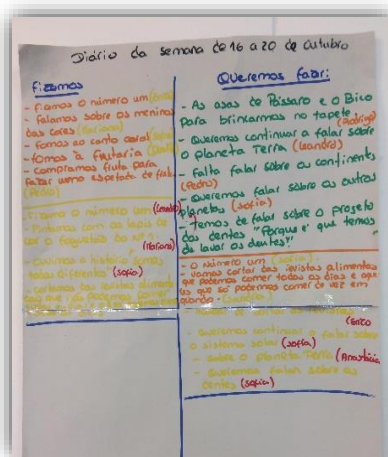 Diário da semana de 16 a 20 de Outubro
Fizemos
- Fizemos o número um
- Falamos sobre os meninos
das cores (Mariana)
- fomos ao canto coral
- fomos à frutaria
- compramos fruta para
fazer uma espetada de fruta
(Pedro)
- Fizemos o número um
- Pintamos com os lápis de
cor o foguetão do Nº 1
(Mariana)
- ouvimos a história somos
todos diferentes (sofia)
Queremos fazer:
- As asas de Pássaro e o Bico
Para brincarmos no tapete (Rodrigo)
- Queremos continuar a falar sobre
o planeta Terra (Leandro)
- falta falar sobre os continentes
(Pedro)
- queremos falar sobre os outros
planetas (sofia)
- temos de falar sobre o projeto
dos dentes "Porque é que temos
de lavar os dentes?"
- O número um (sofia)
- vamos cortar das revistas alimentos
que podemos comer todos os dias e aque
les que só podemos comer de vez em
quando - (Leandro)
(Enzo
- queremos continuar a falar sobre
o sistema solar (sofia)
- sobre o planeta Terra (Anastácia
- queremos falar sobre os
dentes (sofia)